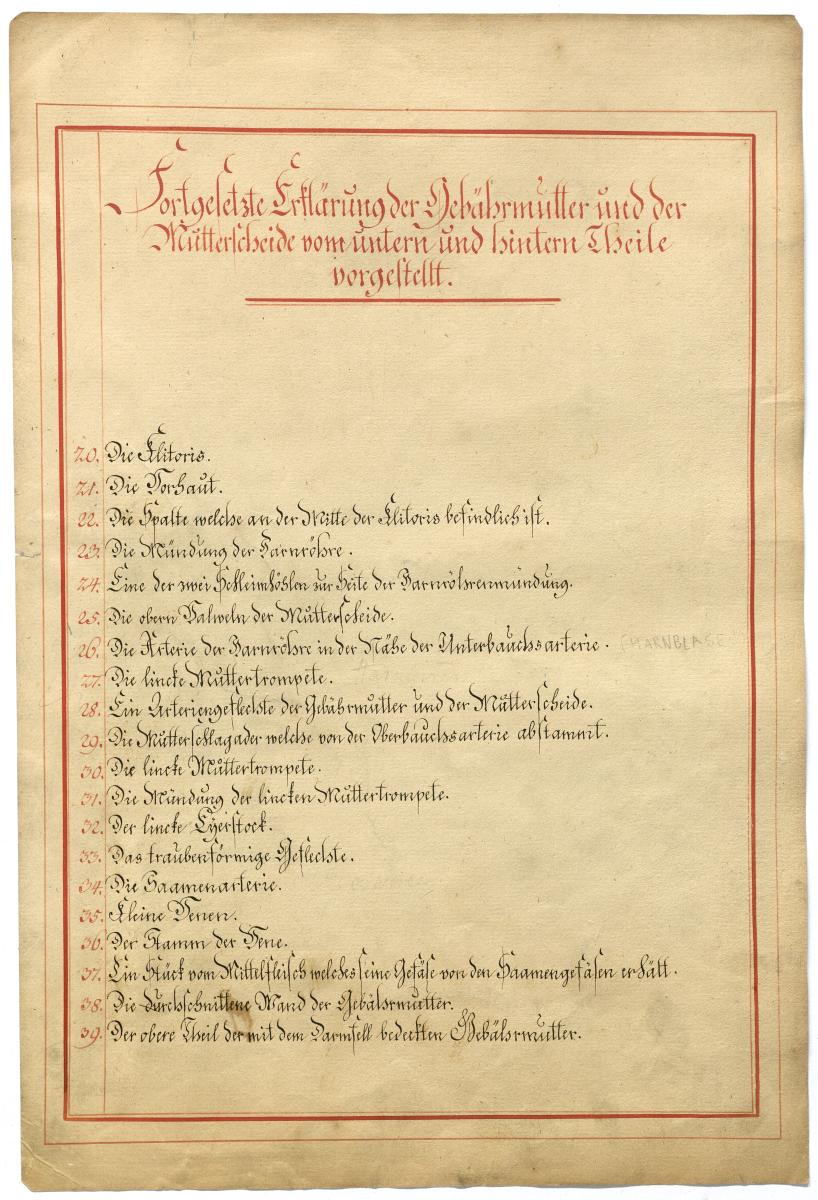 Fortgesetzte Erklärung der Gebährmutter und der
Mutterscheide vom untern und hintern Theile
vorgestellt.
20. Die Klitoris.
21. Die Vorhaut.
22. Die Spalte welche an der Mitte der Klitoris befindlich ist.
23. Die Mündung der Harnröhre.
24. Eine der zwei Schleimhöhlen zur Seite der Harnröhrenmündung.
25. Die obern Falweln der Mutterscheide.
26. Die Arterie der Harnröhre in der Nähe der Unterbauchsarterie. (HARNBLASE
27. Die lincke Muttertrompete.
28. Ein Arteriengeflechte der Gebährmutter und der Mutterscheide.
29. Die Mutterschlagader welche von der Oberbauchsarterie abstammt.
30. Die lincke Muttertrompete.
31. Die Mündung der lincken Muttertrompete.
32. Der lincke Eyerstock.
33. Das traubenförmige Geflechte.
34. Die Saamenarterie.
35. Kleine Venen.
36. Der Stamm der Vene.
37. Ein Stück vom Mittelfleisch welches seine Gefäse von den Saamengefäsen erhält.
38. Die durchschnittene Wand der Gebährmutter.
39. Der obere Theil der mit dem Darmfell bedeckten Gebährmutter.